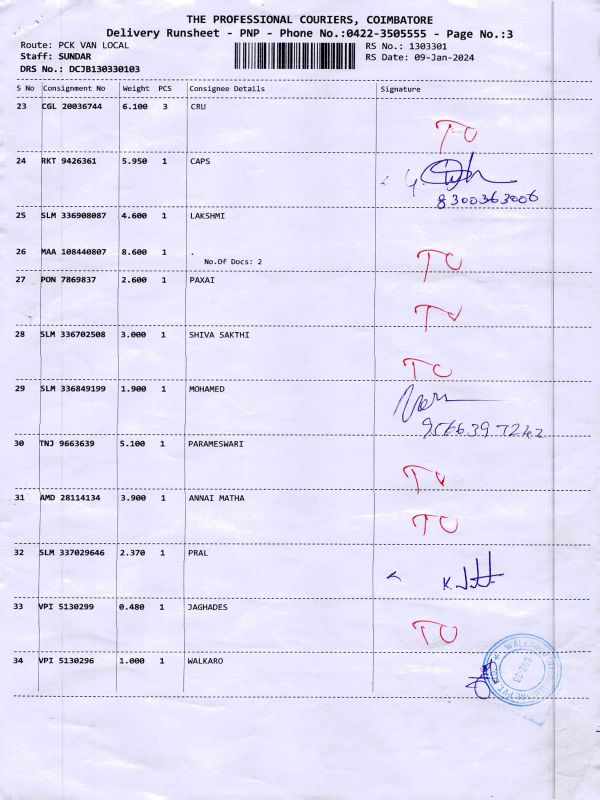 THE PROFESSIONAL COURIERS, COIMBATORE
Delivery Runsheet - PNP - Phone No.:0422-3505555 - Page No.:3
Route: PCK VAN LOCAL
RS No.: 1303301
Staff: SUNDAR
RS Date: 09-Jan-2024
DRS No.: DCJB130330103
S No Consignment No Weight PCS Consignee Details Signature
23 CGL 20036744 6.100 3 CRU
TO
24 RKT 9426361 5.950 1 CAPS
8300363006
25 SLM 336908087 4.600 1 LAKSHMI
26 MAA 108440807 8.600 1 .
No.Of Docs: 2
TO
27 PON 7869837 2.600 1 PAXAI
TO
28 SLM 336702508 3.000 1 SHIVA SAKTHI
TO
29 SLM 336849199 1.900 1 MOHAMED
30 TNJ 9663639 5.100 1 PARAMESWARI
TO
31 AMD 28114134 3.900 1 ANNAI MATHA
TO
32 SLM 337029646 2.370 1 PRAL
33 VPI 5130299 0.480 1 JAGHADES
TO
34 VPI 5130296 1.000 1 WALKARO